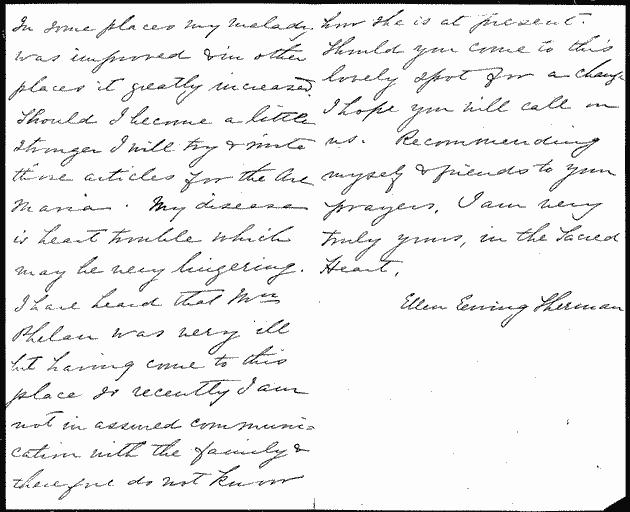 In some places my melady
was improved & in other
places it greatly increased.
Should I become a little
stronger I will try & write
those articles for the Ave
Maria. My disease
is heart trouble which
may be very lingering.
I have heard that Mrs
Phelan was very ill
but having come to this
place so recently I am
not in assured communi=
cation with the family &
therefore do not know
how she is at present.
Should you come to this
lovely spot for a change
I hope you will call on
us. Recommending
myself & friends to your
prayers, I am very
truly yours, in the Sacred
Heart,
Ellen Ewing Sherman